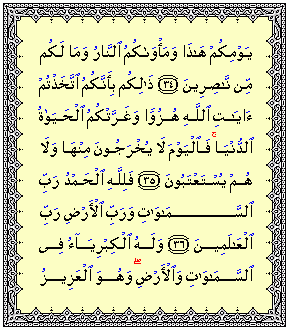 يَوْمِكُمْ هَٰذَا وَمَأْوَىٰكُمُ ٱلنَّارُ وَمَا لَكُم
مِّن نَّٰصِرِينَ ٣٤ ذَٰلِكُم بِأَنَّكُمُ ٱتَّخَذْتُمْ
ءَايَٰتِ ٱللَّهِ هُزُوًا وَغَرَّتْكُمُ ٱلْحَيَوٰةُ
ٱلدُّنْيَا ۚ فَٱلْيَوْمَ لَا يُخْرَجُونَ مِنْهَا وَلَا
هُمْ يُسْتَعْتَبُونَ ٣٥ فَلِلَّهِ ٱلْحَمْدُ رَبِّ
ٱلسَّمَٰوَٰتِ وَرَبِّ ٱلْأَرْضِ رَبِّ
ٱلْعَٰلَمِينَ ٣٦ وَلَهُ ٱلْكِبْرِيَآءُ فِى
ٱلسَّمَٰوَٰتِ وَٱلْأَرْضِ ۖ وَهُوَ ٱلْعَزِيزُ